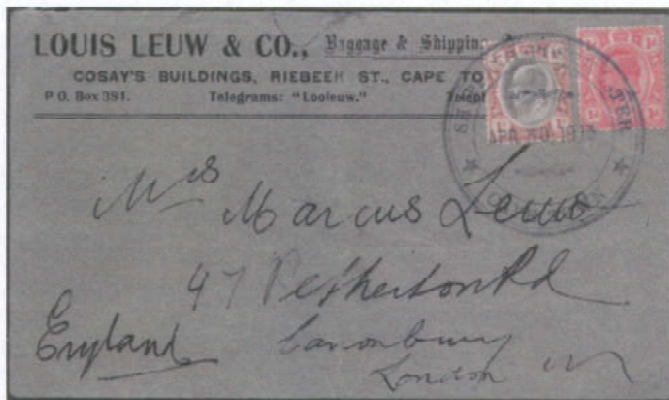 LOUIS LEUW & CO., Baggage & Shipping
COSAY'S BUILDINGS, RIEBEEK ST., CAPE TO
P O. Box 381. Telegrams: "Looleuw." Teleph
APR 30 1913
Mrs Marcus Leuw
47 Petherton Rd
Canonbury
England
London N